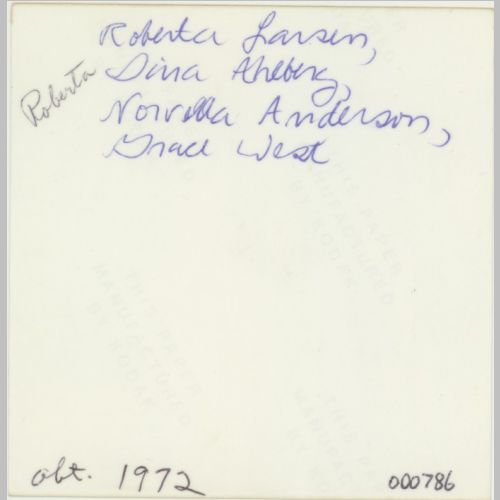 Roberta Larsen,
Roberta
Dina Ahlberg,
Norvella Anderson,
Grace West
THIS PAPER
MANUFACTURED
BY KODAK
THIS PAPER
MANUFACTURED
BY KODAK
abt. 1972
000786